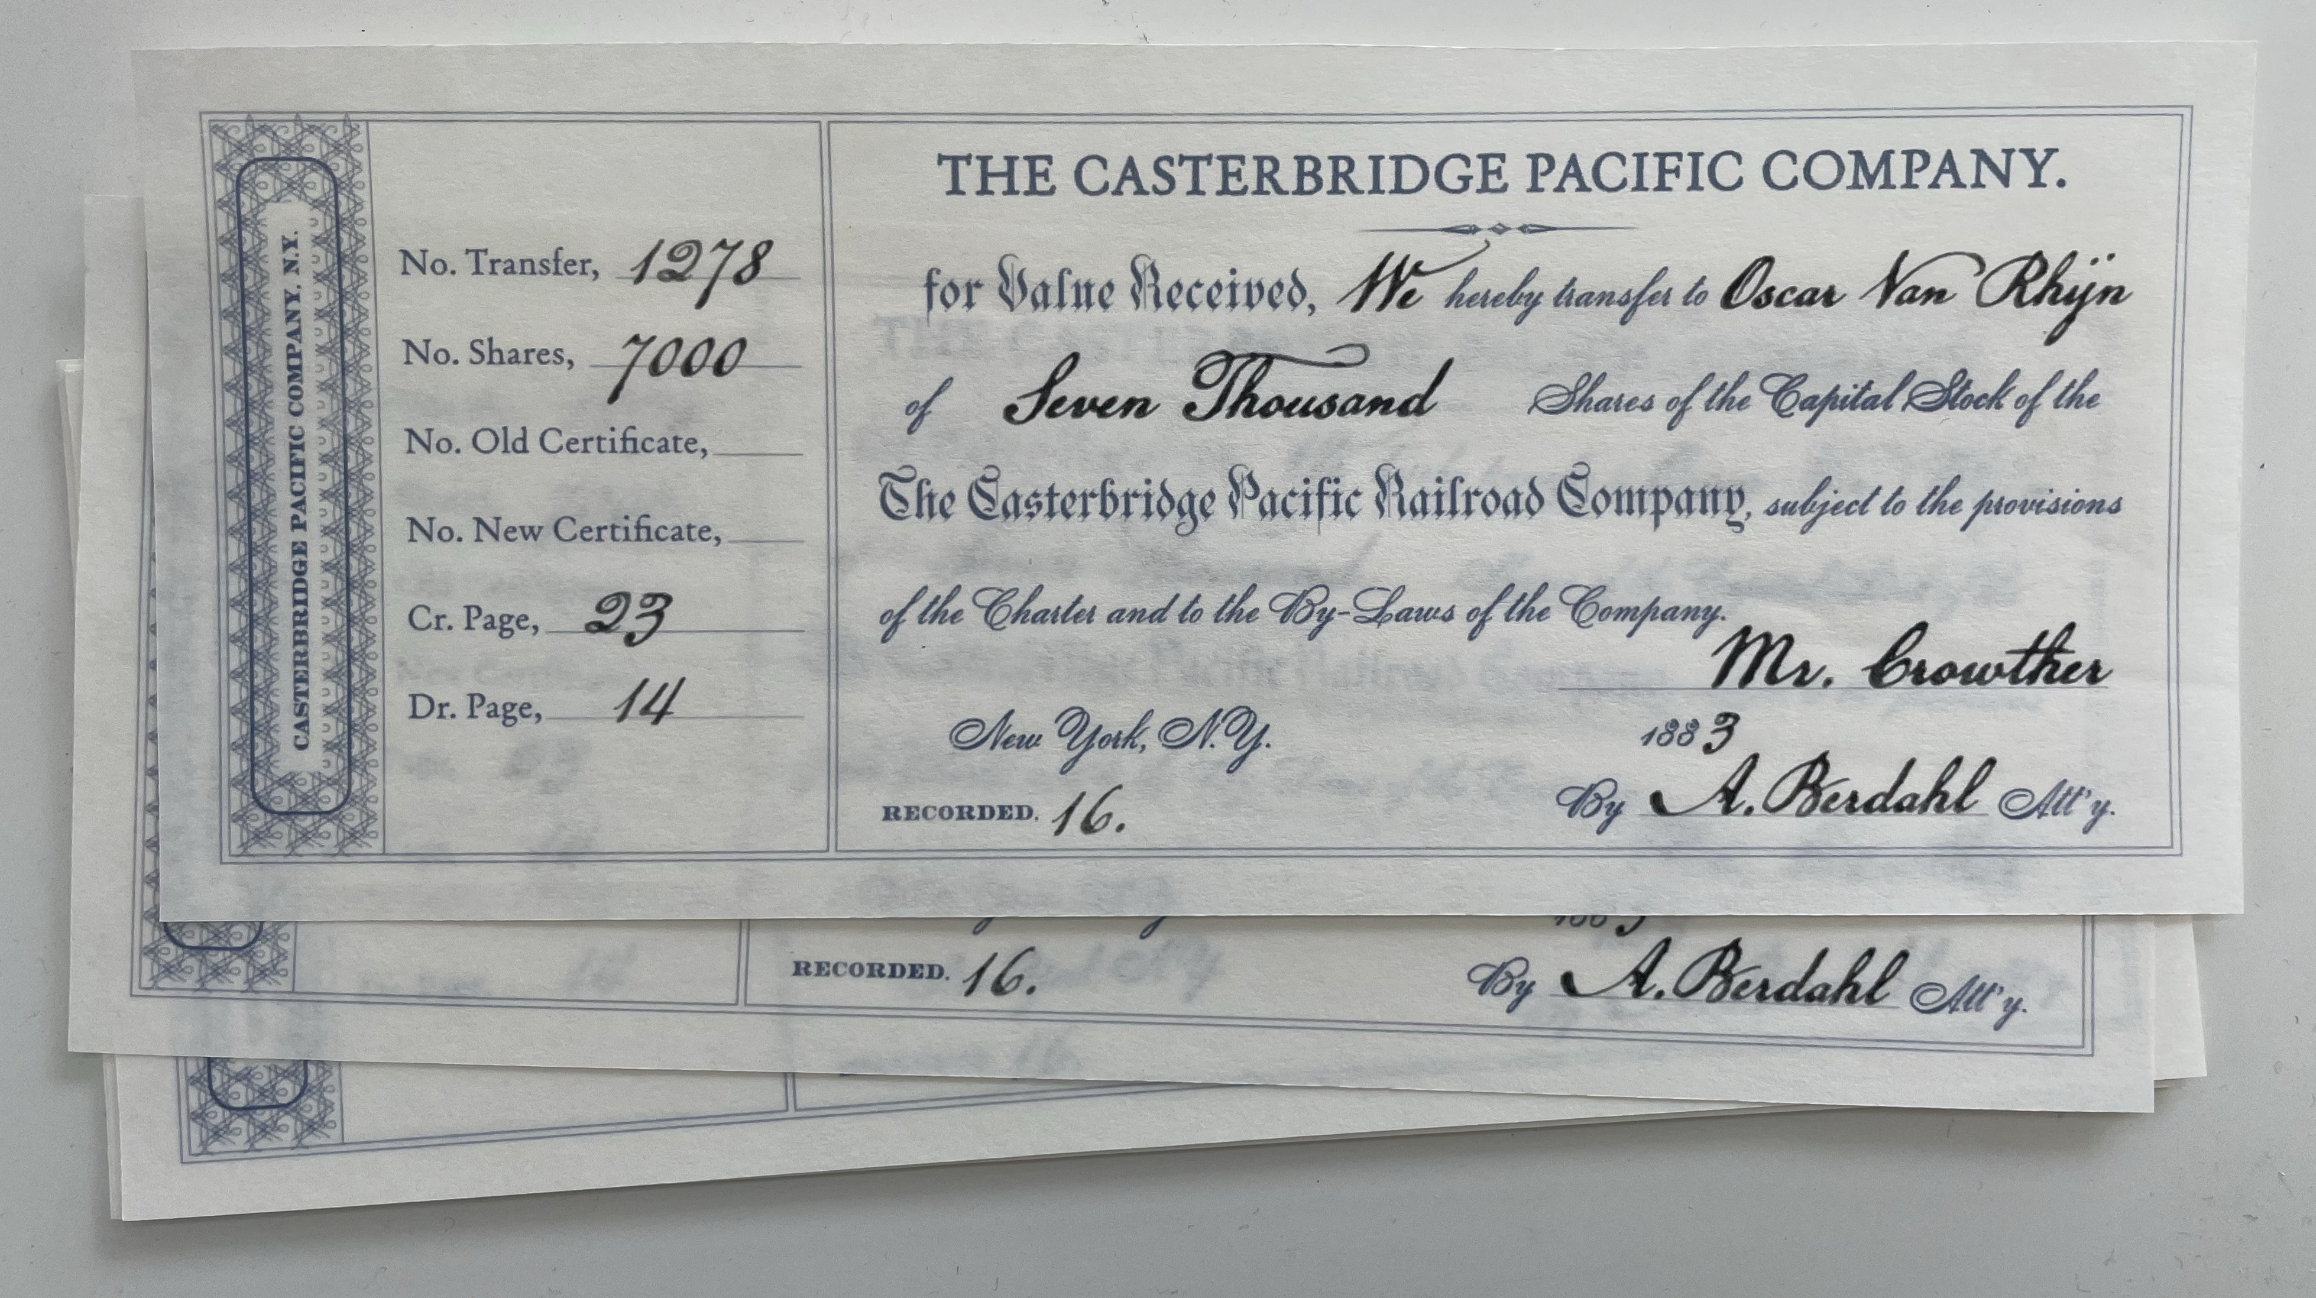 CASTERBRIDGE PACIFIC COMPANY. N.Y.
No. Transfer, 1278
No. Shares, 7000
No. Old Certificate,
No. New Certificate,
Cr. Page, 23
Dr. Page, 14
THE CASTERBRIDGE PACIFIC COMPANY.
for Value Received, We hereby transfer to Oscar Van Rhijn
of Seven Thousand Shares of the Capital Stock of the
The Casterbridge Pacific Railroad Company, subject to the provisions
of the Charter and to the By-Laws of the Company.
Mr. Crowther
New York, N.Y. 1883
RECORDED. 16. By A. Berdahl Att'y.
RECORDED. 16. By A. Berdahl Att'y.